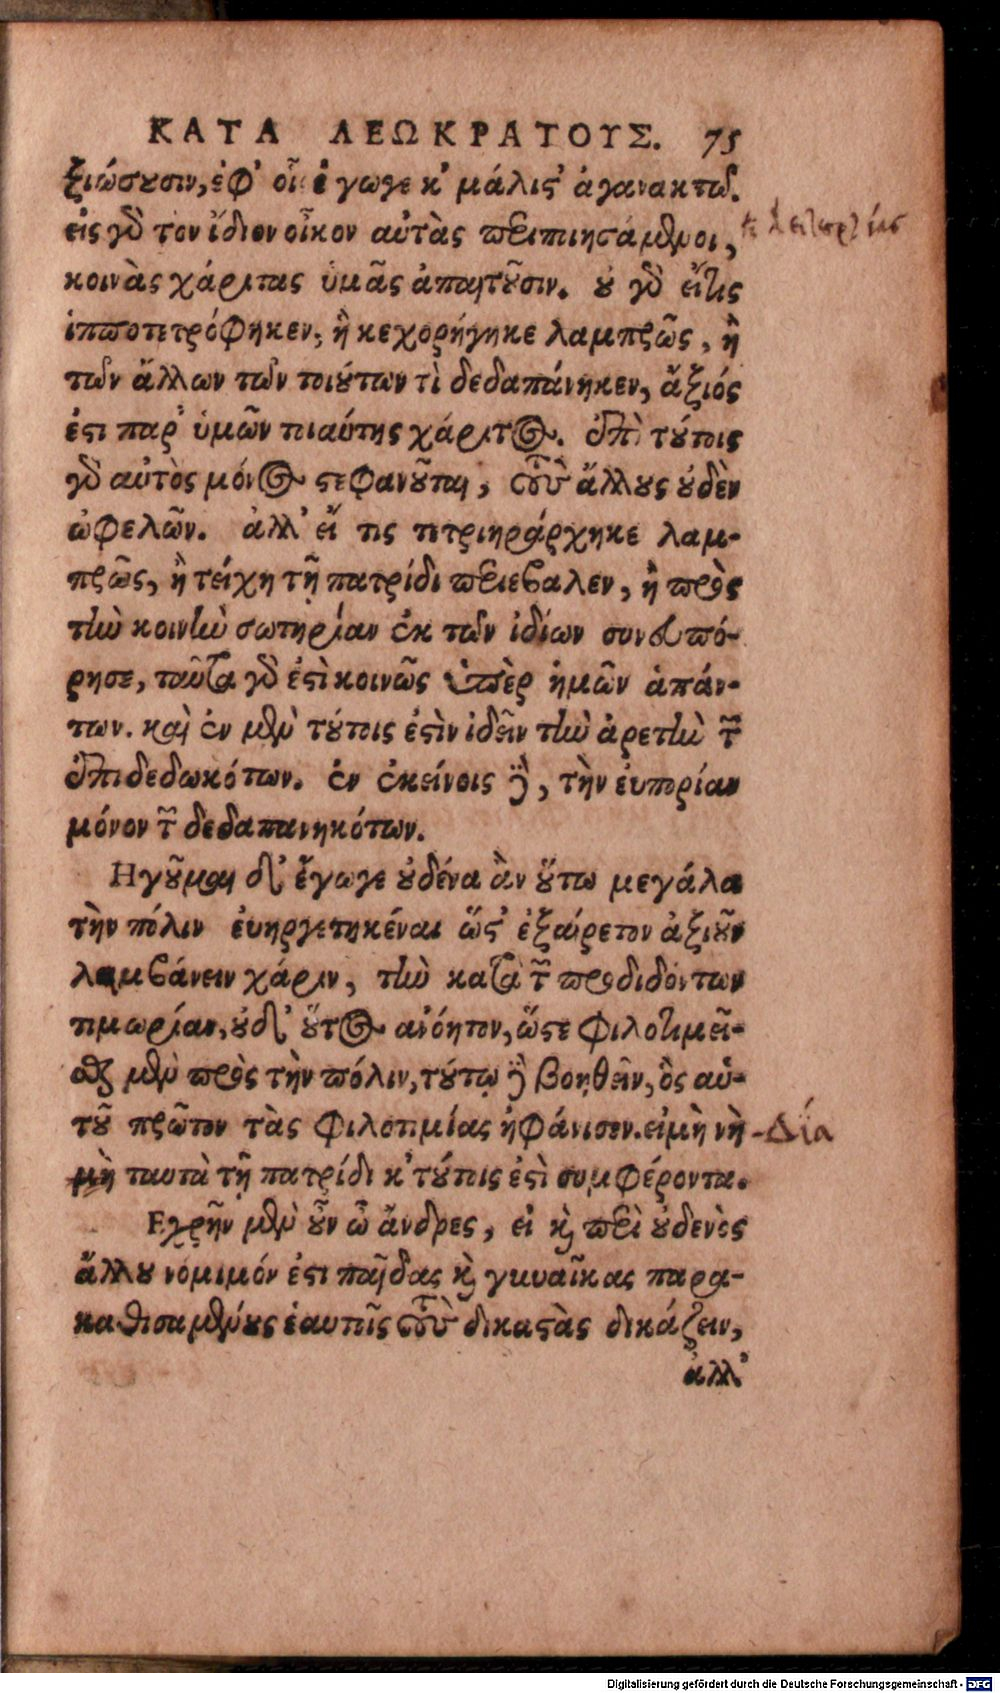 ΚΑΤΑ ΛΕΩΚΡΑΤΟΥΣ. 75
ξιώσουσιν, ἐφ' οἷς ἔγωγε κ' μάλιϛ' ἀγανακτῶ.
εἰς γὸ τὸν ἴδιον οἶκον αὐτὰς περιποιησάμενοι,
κοινὰς χάριτας ὑμᾶς ἀπαιτοῦσιν. οὐ γὸ εἴτις
ἱπποτετρόφηκεν, ἢ κεχορήγηκε λαμπρῶς, ἢ
τῶν ἄλλων τῶν τοιούτων τὶ δεδαπάνηκεν, ἄξιός
ἐϛι παρ' ὑμῶν τοιαύτης χάριτος. ἐπὶ τούτοις
γὸ αὐτὸς μόνος ϛεφανοῦται, τοὺς ἄλλους οὐδὲν
ὠφελῶν. ἀλλ' εἴ τις τετριηράρχηκε λαμ-
πρῶς, ἢ τείχη τῇ πατρίδι περιέβαλεν, ἢ πρὸς
τὴν κοινὴν σωτηρίαν ἐκ τῶν ἰδίων συνευπό-
ρησε, ταῦτα γὸ ἐϛὶ κοινῶς ὑπὲρ ἡμῶν ἁπάν-
των. καὶ ἐν μὲν τούτοις ἐϛὶν ἰδεῖν τὴν ἀρετὴν τῶν
ἐπιδεδωκότων. ἐν ἐκείνοις δὲ, τὴν εὐπορίαν
μόνον τῶν δεδαπανηκότων.
Ηγοῦμαι δ' ἔγωγε οὐδένα ἂν οὕτω μεγάλα
τὴν πόλιν ἐυηργετηκέναι ὥϛ' ἐξαίρετον ἀξιοῦν
λαμβάνειν χάριν, τὴν κατὰ τῶν προδιδόντων
τιμωρίαν, οὐδ' οὕτος ἀνόητον, ὥϛε φιλοτιμεῖ-
σθαι μὲν πρὸς τὴν πόλιν, τούτῳ δὲ βοηθεῖν, ὃς αὐ-
τοῦ πρῶτον τὰς φιλοτιμίας ἠφάνισεν. εἰμὴ νὴ -Δία
μὴ ταυτὰ τῇ πατρίδι κ' τούτοις ἐϛὶ συμφέροντα.
Εχρῆν μὲν οὖν ὦ ἄνδρες, εἰ κὶ περὶ οὐδενὸς
ἄλλου νόμιμόν ἐϛι παῖδας κὶ γυναῖκας παρα-
καθισαμένους ἑαυτοῖς τοὺς δικαϛὰς δικάζειν,
ἀλλ'
Digitalisierung gefördert durch die Deutsche Forschungsgemeinschaft - DFG